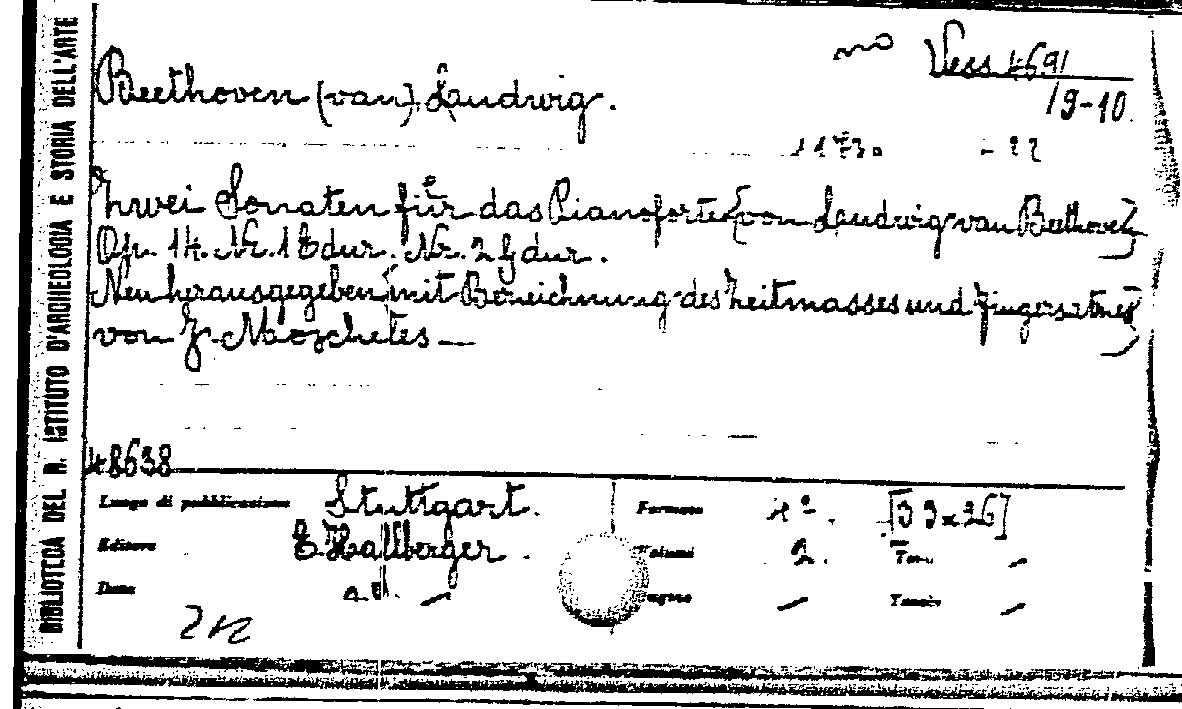 BIBLIOTECA DEL R. ISTITUTO D'ARCHEOLOGIA E STORIA DELL'ARTE
Vess 4691
19-10.
Beethoven (van) Ludwig.
Zwei Sonaten für das Pianoforte (von Ludwig van Beethoven)
Op. 14. Nr. 1 Edur. Nr. 2 G dur.
Neu herausgegeben (mit Bezeichnung des Zeitmasses und Fingersatzes)
von J. Moscheles
48638
Luogo di pubblicazione Stuttgart.
Formato 4º. [33x26]
Editore E. Hallberger.
Volumi 2. Tom.
Data s.d.
Pagine Tavole